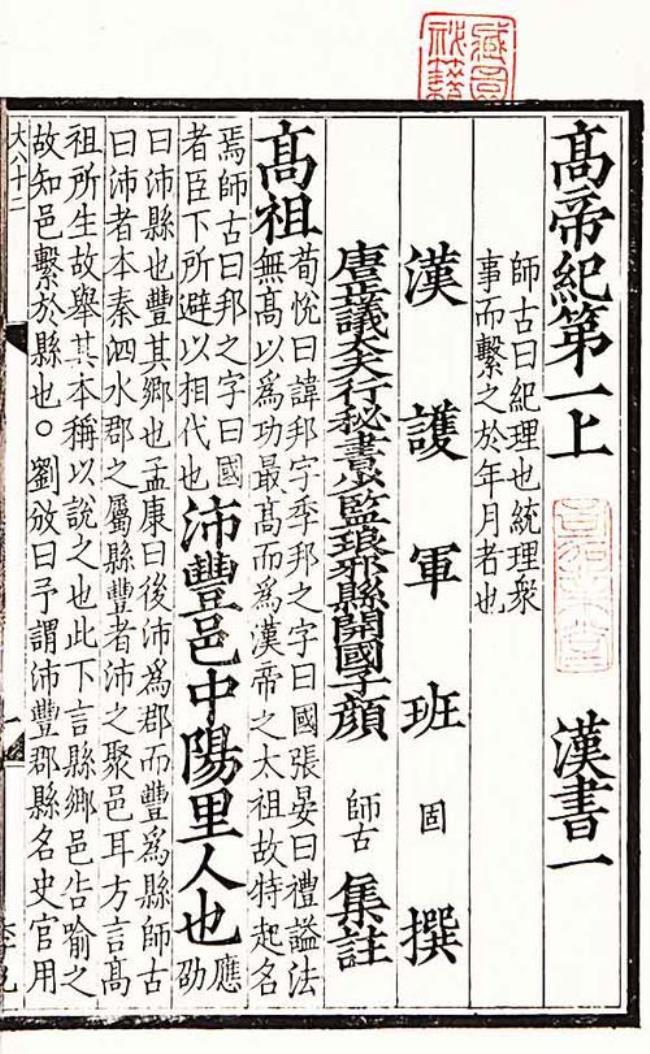 高帝紀第一上 漢書一
師古曰紀理也統理衆
事而繫之於年月者也
漢護軍班固撰
唐正議大夫行秘書少監琅邪縣開國子顏師古集註
高祖
荀悅曰諱邦字季邦之字曰國張晏曰禮謚法
無高以爲功最高而爲漢帝之太祖故特起名
焉師古曰邦之字曰國
者臣下所避以相代也
沛豐邑中陽里人也
應
劭
曰沛縣也豐其鄉也孟康曰後沛爲郡而豐爲縣師古
曰沛者本秦泗水郡之屬縣豐者沛之聚邑耳方言高
祖所生故舉其本稱以說之也此下言縣鄉邑告喻之
故知邑繫於縣也○劉攽曰予謂沛豐郡縣名史官用
大八十二